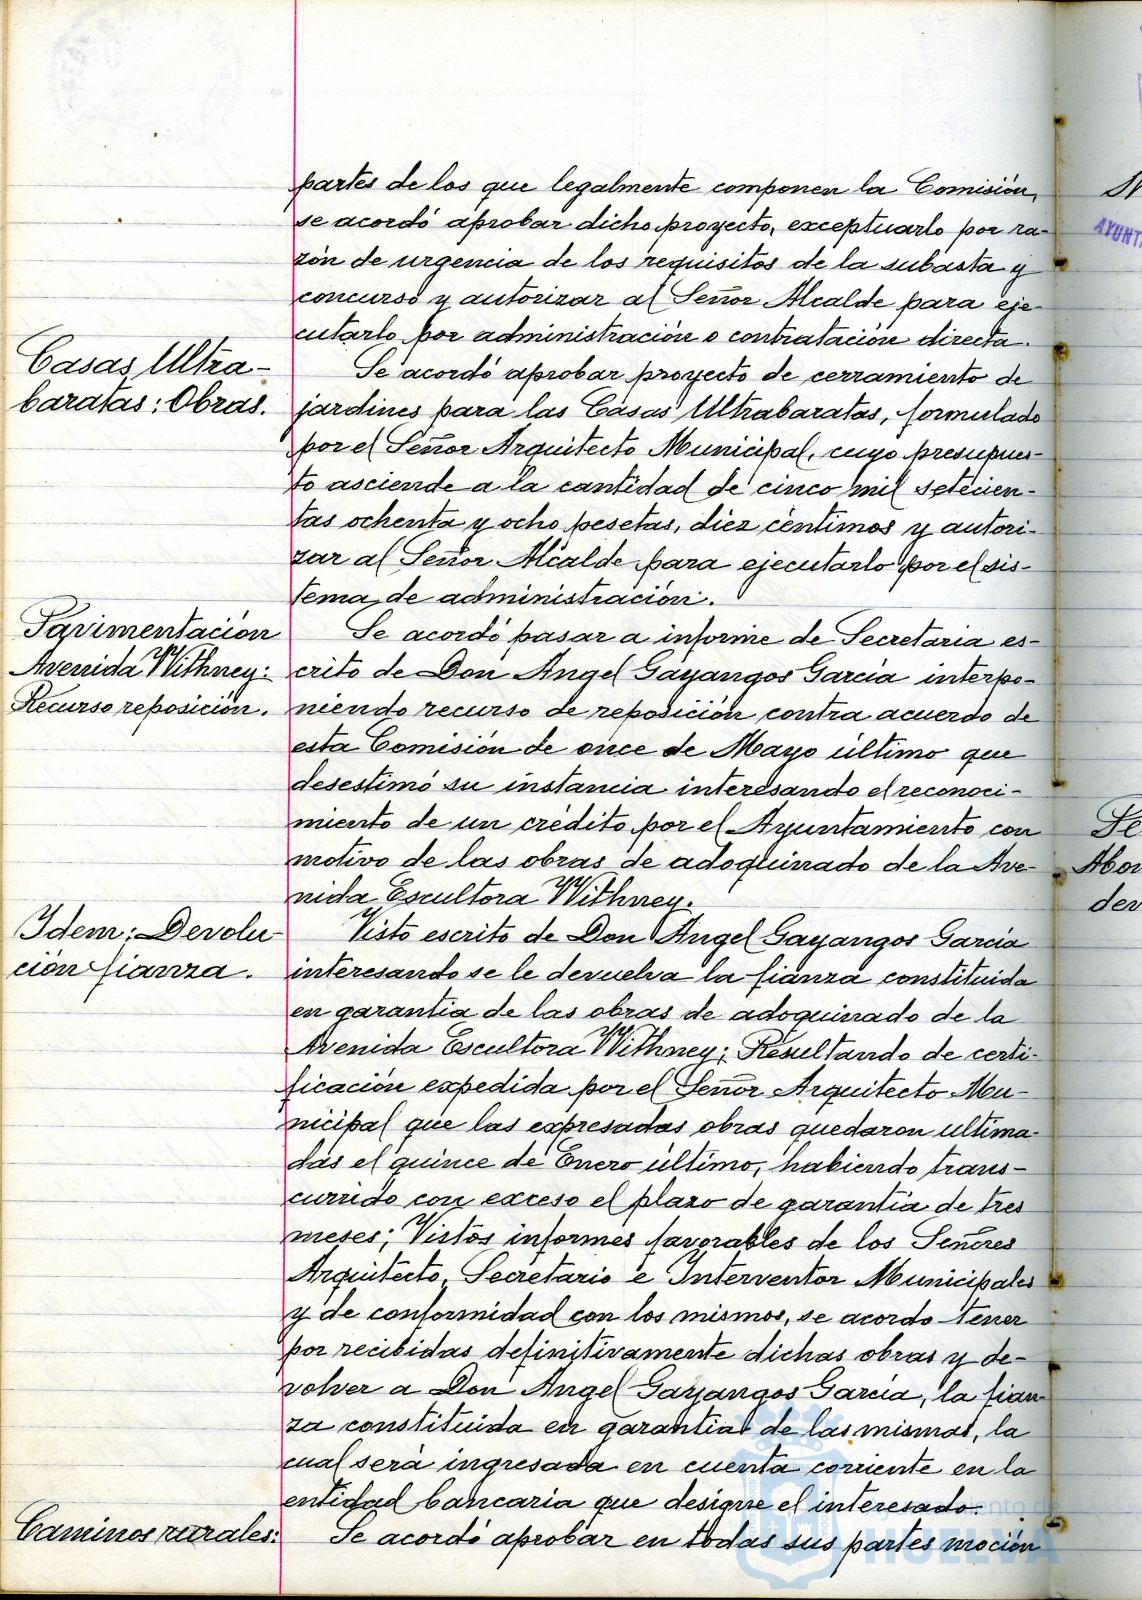 partes de los que legalmente componen la Comisión,
se acordó aprobar dicho proyecto, exceptuarlo por ra-
zón de urgencia de los requisitos de la subasta y
concurso y autorizar al Señor Alcalde para eje-
cutarlo por administración o contratación directa.
Casas Ultra-
baratas: Obras.
Se acordó aprobar proyecto de cerramiento de
jardines para las Casas Ultrabaratas, formulado
por el Señor Arquitecto Municipal, cuyo presupues-
to asciende a la cantidad de cinco mil setecien-
tas ochenta y ocho pesetas, diez céntimos y autori-
zar al Señor Alcalde para ejecutarlo por el sis-
tema de administración.
Pavimentación
Avenida Withney:
Recurso reposición.
Se acordó pasar a informe de Secretaria es-
crito de Don Angel Gayangos García interpo-
niendo recurso de reposición contra acuerdo de
esta Comisión de once de Mayo último que
desestimó su instancia interesando el reconoci-
miento de un crédito por el Ayuntamiento con
motivo de las obras de adoquinado de la Ave-
nida Escultora Withney.
Idem: Devolu-
ción fianza.
Visto escrito de Don Angel Gayangos García
interesando se le devuelva la fianza constituida
en garantía de las obras de adoquinado de la
Avenida Escultora Withney; Resultando de certi-
ficación expedida por el Señor Arquitecto Mu-
nicipal que las expresadas obras quedaron ultima-
das el quince de Enero último, habiendo trans-
currido con exceso el plazo de garantía de tres
meses; Vistos informes favorables de los Señores
Arquitecto, Secretario e Interventor Municipales
y de conformidad con los mismos, se acordo tener
por recibidas definitivamente dichas obras y de-
volver a Don Angel Gayangos García, la fian-
za constituida en garantia de las mismas, la
cual será ingresada en cuenta corriente en la
entidad bancaria que designe el interesado.
Caminos rurales:
Se acordó aprobar en todas sus partes moción
AYUNT
Abor
dev
Ayuntamiento de
HUELVA